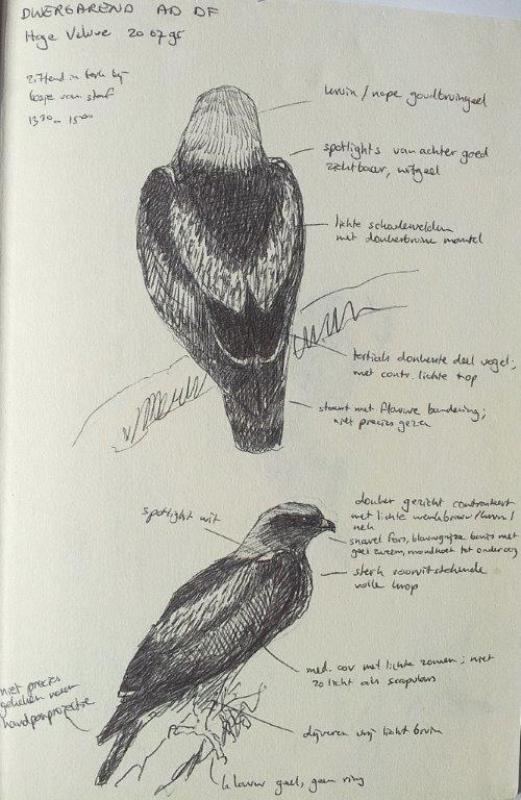 DWERGAREND AD DF
Hoge Veluwe 20 07 95
zittend in berk bij
bosje van staf
13³⁰ - 15⁰⁰
kruin / nape goudbruingeel
spotlights van achter goed
zichtbaar, witgeel
lichte schouderveldem
met donkerbruine mantel
tertials donkerste deel vogel;
met contr. lichte top
staart met flauwe bandering;
niet precies gezien
spotlight wit
donker gezicht contrasteert
met lichte wenkbrauw/kruin/
nek
snavel fors, blauwgrijze basis met
geel washuid, mondhoek tot onder oog
sterk vooruitstekende
volle krop
med. cov met lichte zomen; niet
zo licht als scapulars
niet precies
gekeken naar
handpenprojectie
dijveren vrij licht bruin
klauw geel, geen ring